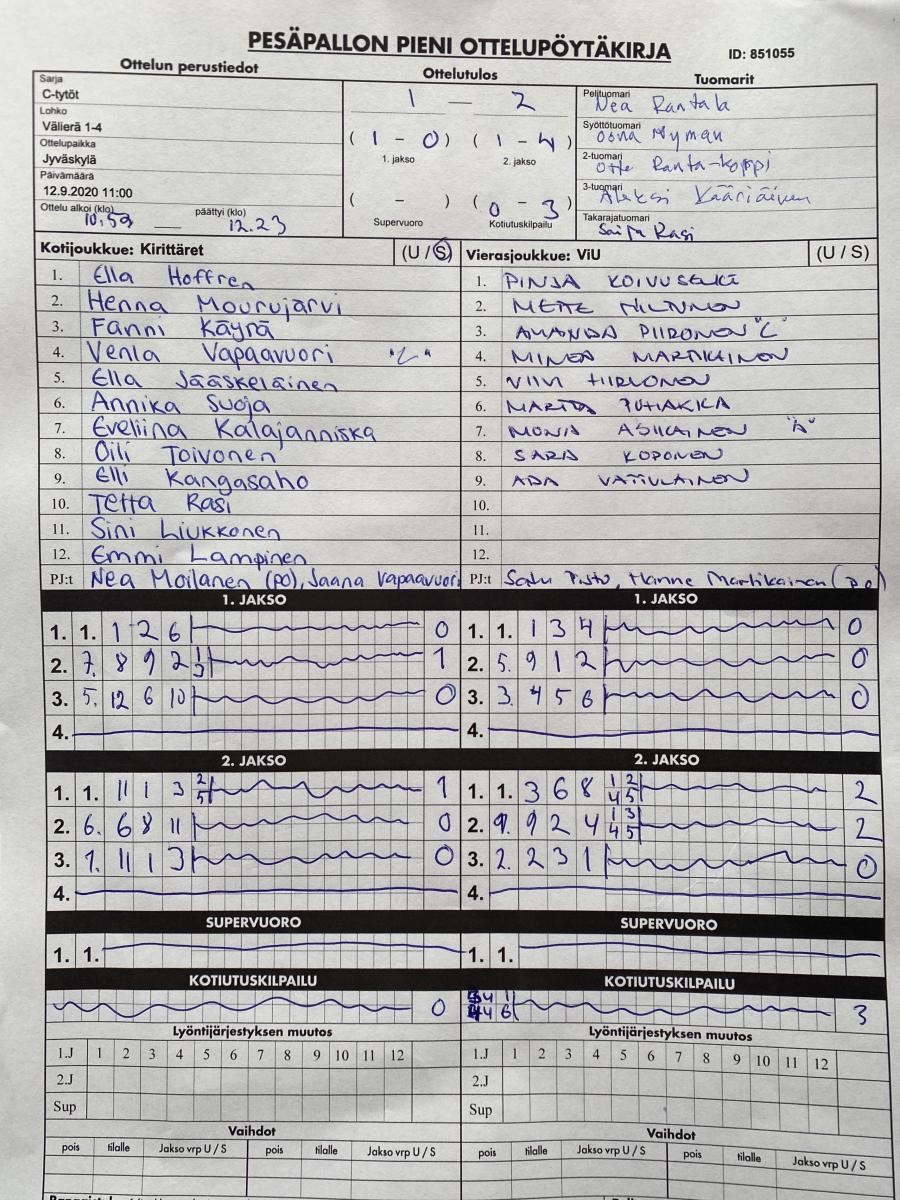 PESÄPALLON PIENI OTTELUPÖYTÄKIRJA
ID: 851055
Ottelun perustiedot
Sarja
C-tytöt
Lohko
Välierä 1-4
Ottelupaikka
Jyväskylä
Päivämäärä
12.9.2020 11:00
Ottelu alkoi (klo) päättyi (klo)
10.59 — 12.23
Ottelutulos
1 — 2
(1 - 0) (1 - 4)
1. jakso 2. jakso
( - ) (0 - 3)
Supervuoro Kotiutuskilpailu
Tuomarit
Pelituomari
Nea Rantala
Syöttötuomari
Oona Nyman
2-tuomari
Otte Ranta-koppi
3-tuomari
Aleksi Kääriäinen
Takarajatuomari
Saija Rasi
Kotijoukkue: Kirittäret (U / S)
1. Ella Hoffren
2. Henna Mourujärvi
3. Fanni Käyrä
4. Venla Vapaavuori "C"
5. Ella Jääskeläinen
6. Annika Suoja
7. Eveliina Kalajanniska
8. Oili Toivonen
9. Elli Kangasaho
10. Tetta Rasi
11. Sini Liukkonen
12. Emmi Lampinen
PJ:t Nea Moilanen (po), Jaana Vapaavuori
Vierasjoukkue: ViU (U / S)
1. PINJA KOIVUSELKÄ
2. METTE HILTUNEN
3. AMANDA PIIRONEN "C"
4. MINEA MARTIKAINEN
5. VIIVI HIRVONEN
6. MARTTA PUHAKKA
7. MONA ASIKAINEN "A"
8. SARA KOPONEN
9. ADA VATTULAINEN
10.
11.
12.
PJ:t Satu Pisto, Hanne Martikainen (po)
1. JAKSO
1. 1. 1 2 6 0
2. 7. 8 9 2 1 3 1
3. 5. 12 6 10 0
4.
1. JAKSO
1. 1. 1 3 4 0
2. 5. 9 1 2 0
3. 3. 4 5 6 0
4.
2. JAKSO
1. 1. 11 1 3 2 5 1
2. 6. 6 8 11 0
3. 7. 11 1 3 0
4.
2. JAKSO
1. 1. 3 6 8 1 2 4 5 2
2. 9. 9 2 4 1 3 4 5 2
3. 2. 2 3 1 0
4.
SUPERVUORO
1. 1.
SUPERVUORO
1. 1.
KOTIUTUSKILPAILU
0
KOTIUTUSKILPAILU
3
Lyöntijärjestyksen muutos
1.J 1 2 3 4 5 6 7 8 9 10 11 12
2.J
Sup
Lyöntijärjestyksen muutos
1.J 1 2 3 4 5 6 7 8 9 10 11 12
2.J
Sup
Vaihdot
pois tilalle Jakso vrp U / S pois tilalle Jakso vrp U / S
Vaihdot
pois tilalle Jakso vrp U / S pois tilalle Jakso vrp U / S